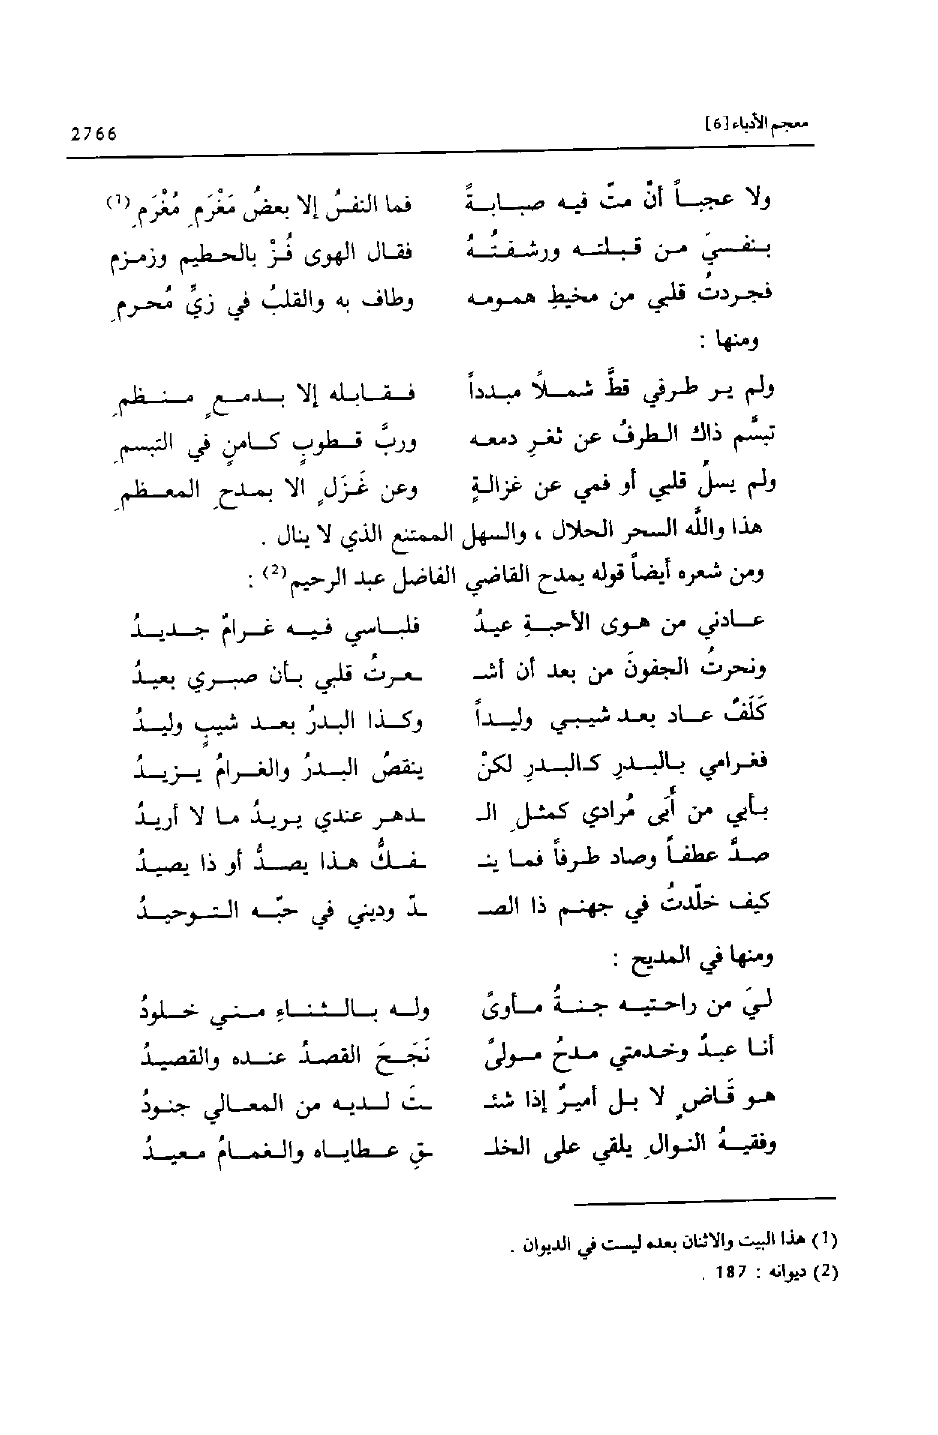 معجم الأدباء [6] 2766
ولا عجباً أنْ متّ فيه صبابةً فما النفسُ إلا بعضُ مَغْرَمِ مُغْرَمِ (1)
بنفسيَ من قبلته ورشفتُهُ فقال الهوى فُزْ بالحطيم وزمزم
فجردتُ قلبي من مخيطِ همومه وطاف به والقلبُ في زيِّ مُحرمِ
ومنها :
ولم ير طرفي قطَّ شملاً مبدداً فقابله إلا بدمعٍ منظمِ
تبسَّم ذاك الطرفُ عن ثغرِ دمعه وربَّ قطوبٍ كامنٍ في التبسمِ
ولم يسلُ قلبي أو فمي عن غزالةٍ وعن غَزَلٍ الا بمدحِ المعظمِ
هذا والله السحر الحلال ، والسهل الممتنع الذي لا ينال .
ومن شعره أيضاً قوله يمدح القاضي الفاضل عبد الرحيم (2) :
عادني من هوى الأحبةِ عيدُ فلباسي فيه غرامٌ جديدُ
ونحرتُ الجفونَ من بعد أن أشـ ـعرتُ قلبي بأن صبري بعيدُ
كَلَفٌ عاد بعد شيبي وليداً وكذا البدرُ بعد شيبٍ وليدُ
فغرامي بالبدرِ كالبدرِ لكنْ ينقصُ البدرُ والغرامُ يزيدُ
بأبي من أَبى مُرادي كمثلِ الـ ـدهر عندي يريدُ ما لا أريدُ
صدَّ عطفاً وصاد طرفاً فما ينـ ـفكُّ هذا يصدُّ أو ذا يصيدُ
كيف خلّدتُ في جهنم ذا الصـ ـدّ وديني في حبّه التوحيدُ
ومنها في المديح :
ليَ من راحتيه جنةُ مأوىً وله بالثناءِ مني خلودُ
أنا عبدٌ وخدمتي مدحُ مولىً نَجَحَ القصدُ عنده والقصيدُ
هو قَاضٍ لا بل أميرٌ إذا شئـ ـتَ لديه من المعالي جنودُ
وفقيهُ النوالِ يلقي على الخلـ ـقِ عطاياه والغمامُ معيدُ
(1) هذا البيت والاثنان بعده ليست في الديوان .
(2) ديوانه : 187 .